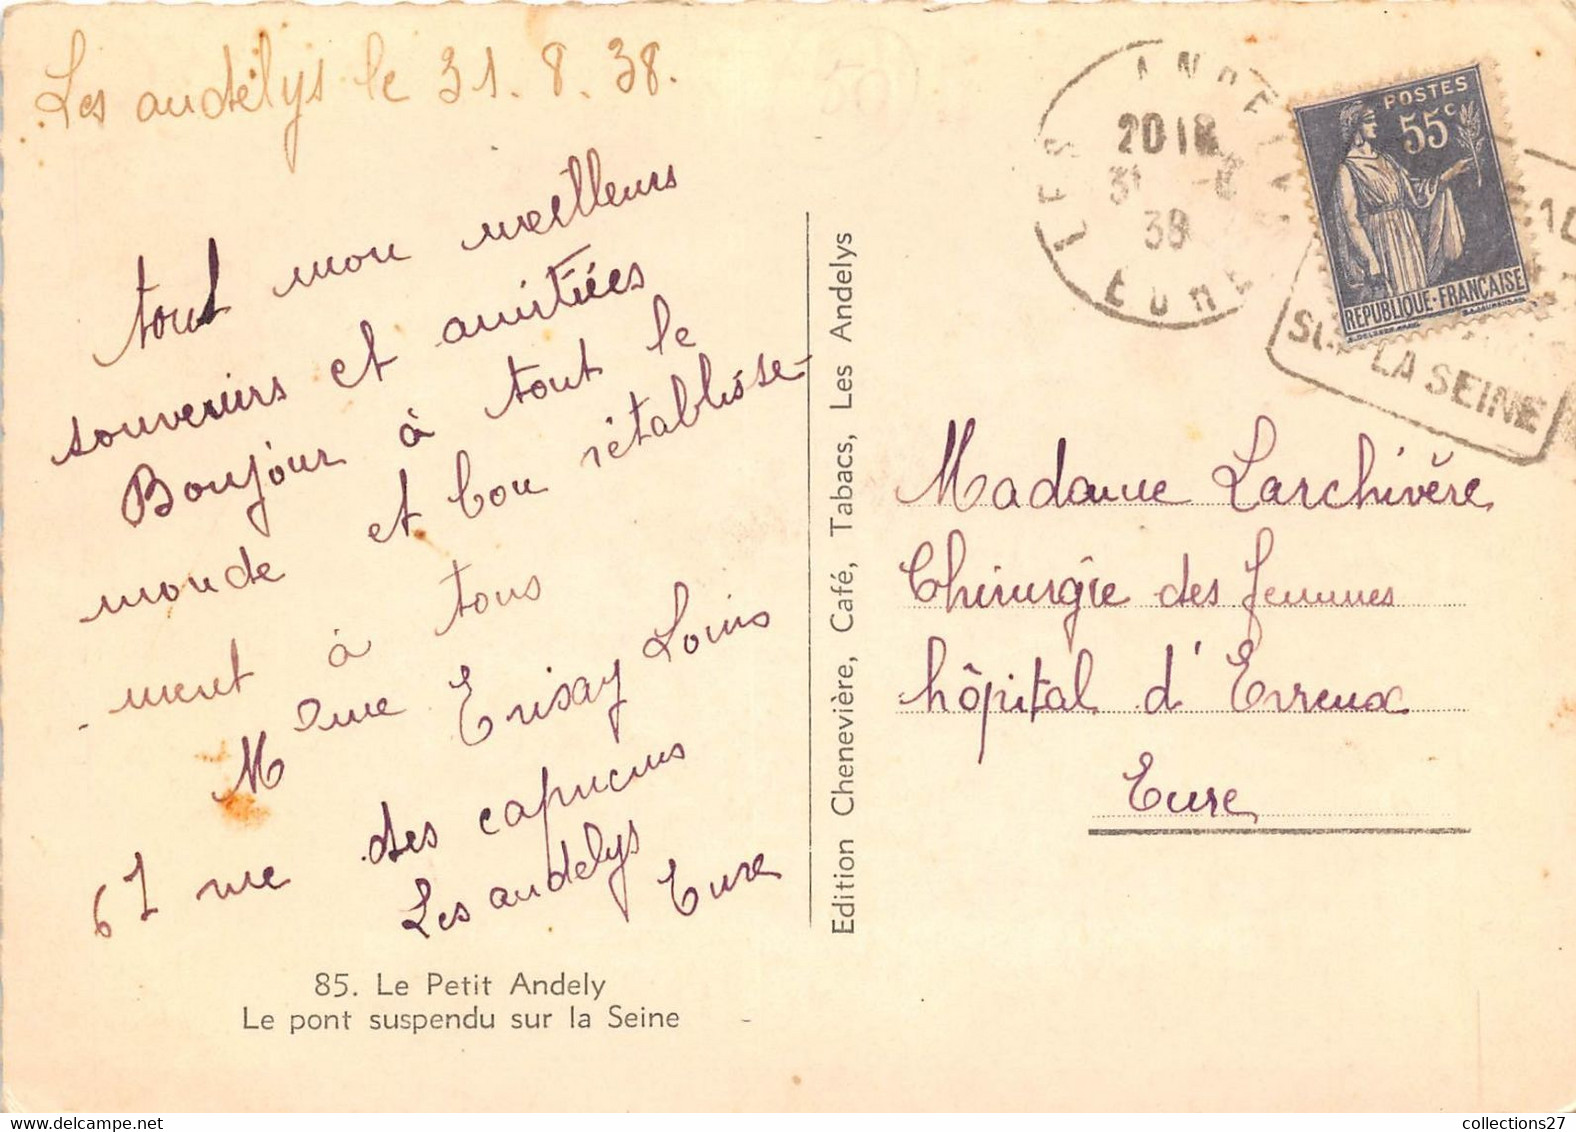 Les andélys le 31. 8. 38.
tout mon meilleurs
souvenirs et amitiées
Bonjour à tout le
monde et bon rétablisse-
ment à tous
Mme Louis
61 rue des capucins
Les andelys
Eure
85. Le Petit Andely
Le pont suspendu sur la Seine
Edition Chenevière, Café, Tabacs, Les Andelys
LES ANDELYS
20 18
31 -8
38
EURE
POSTES
55c
REPUBLIQUE·FRANÇAISE
SUR LA SEINE
Madame Larchivère
Chirurgie des femmes
hôpital d'Evreux
Eure
collections27